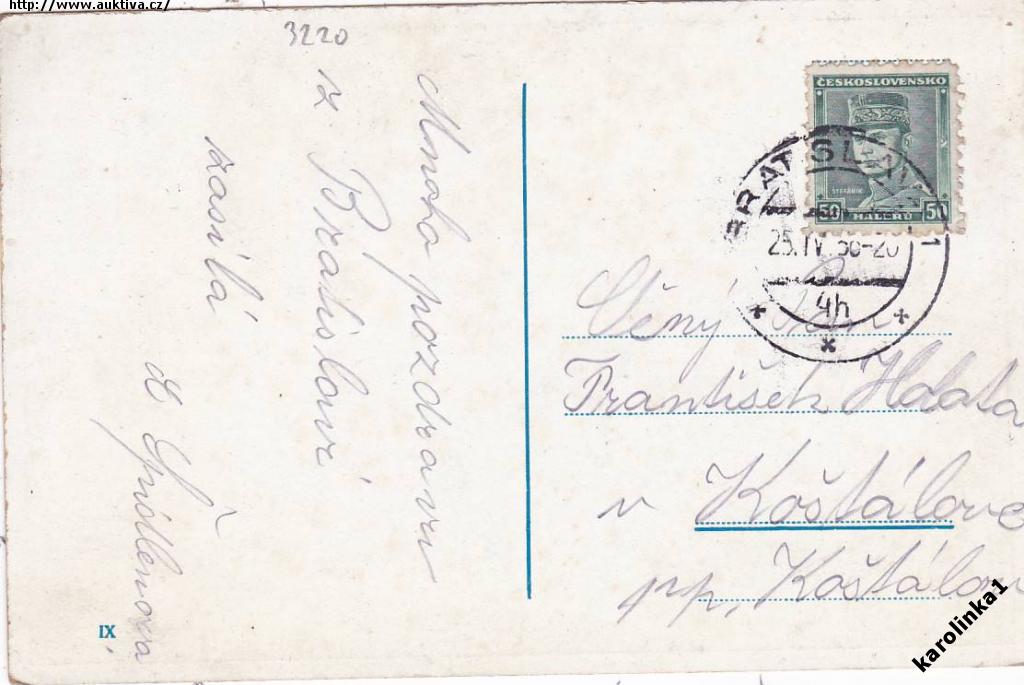 http://www.auktiva.cz/
3220
Mnoho pozdravu
z Bratislavi
zasílá
ČESKOSLOVENSKO
ŠTEFÁNIK
50 HALÉŘŮ 50
BRATISLAVA 1
25.IV.36-20
4h
Ctěný pan
František Hdata
v Košťálově
pp. Košťálov
IX
karolinka1